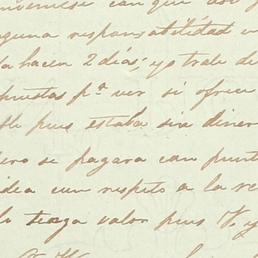 convenirse can que
guna responsabilidad
hacen 2 dias, yo trate de
puestas pª ver si ofrec
pues estaba sin diner
ero se pagara can punt
idea cum respeto a la re
lo tenga valor pues V. y